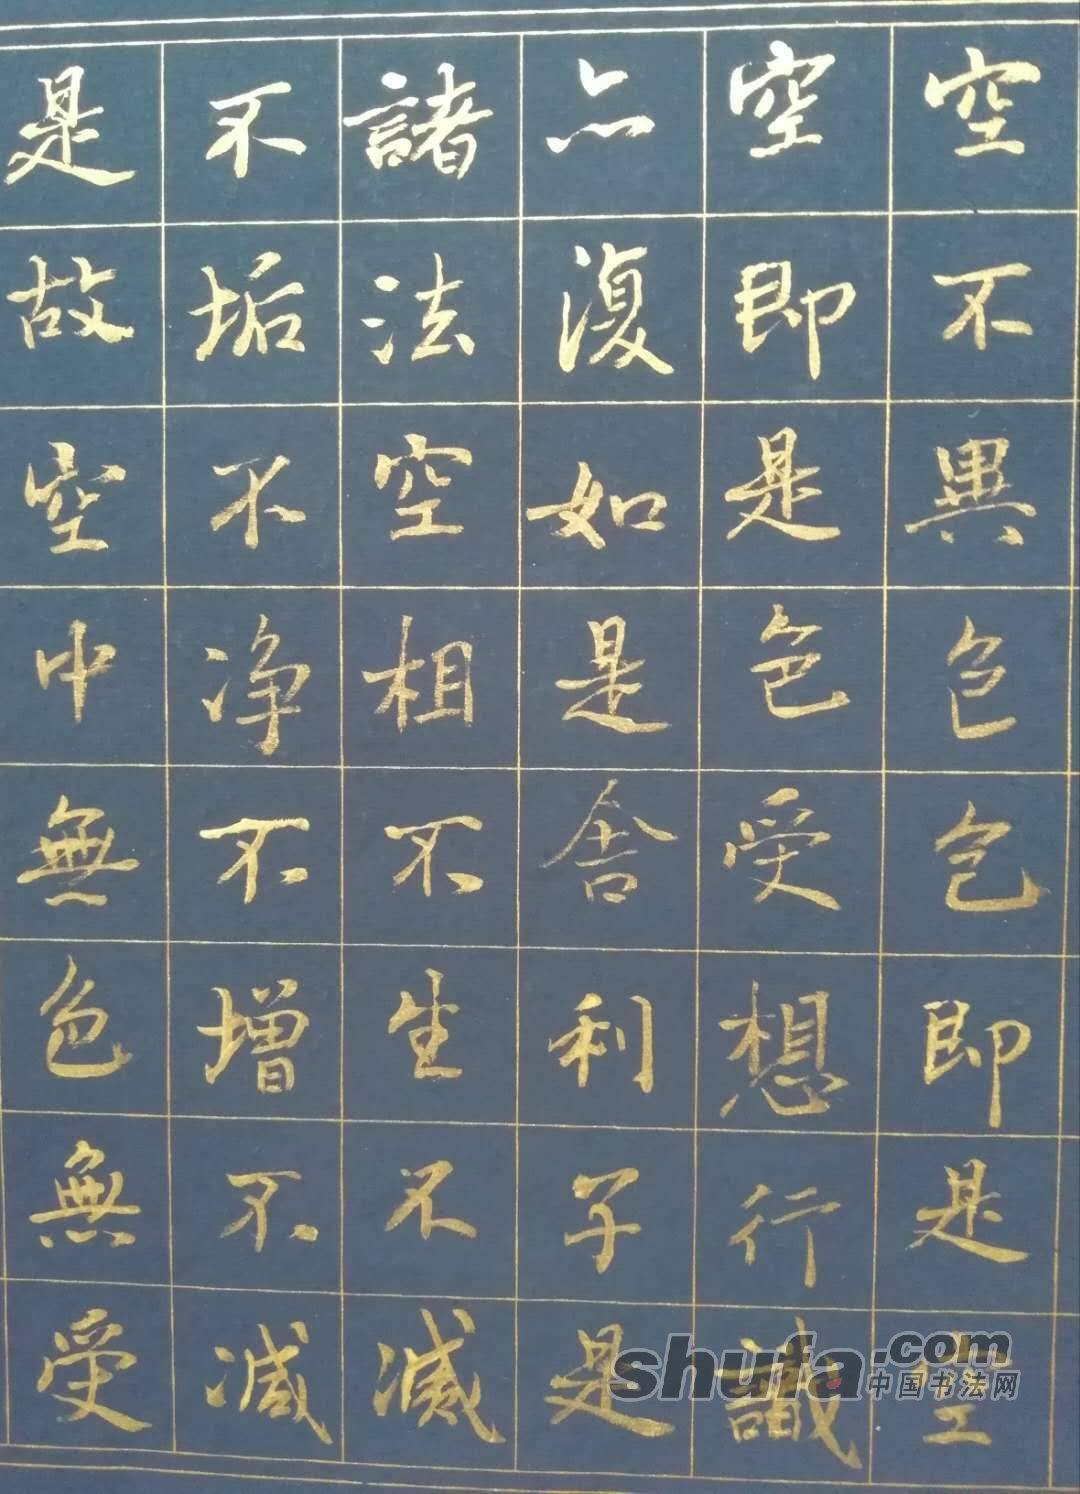 空不異色色即是空
空即是色受想行識
亦復如是舍利子是
諸法空相不生不滅
不垢不净不增不減
是故空中無色無受
shufa.com
中国书法网